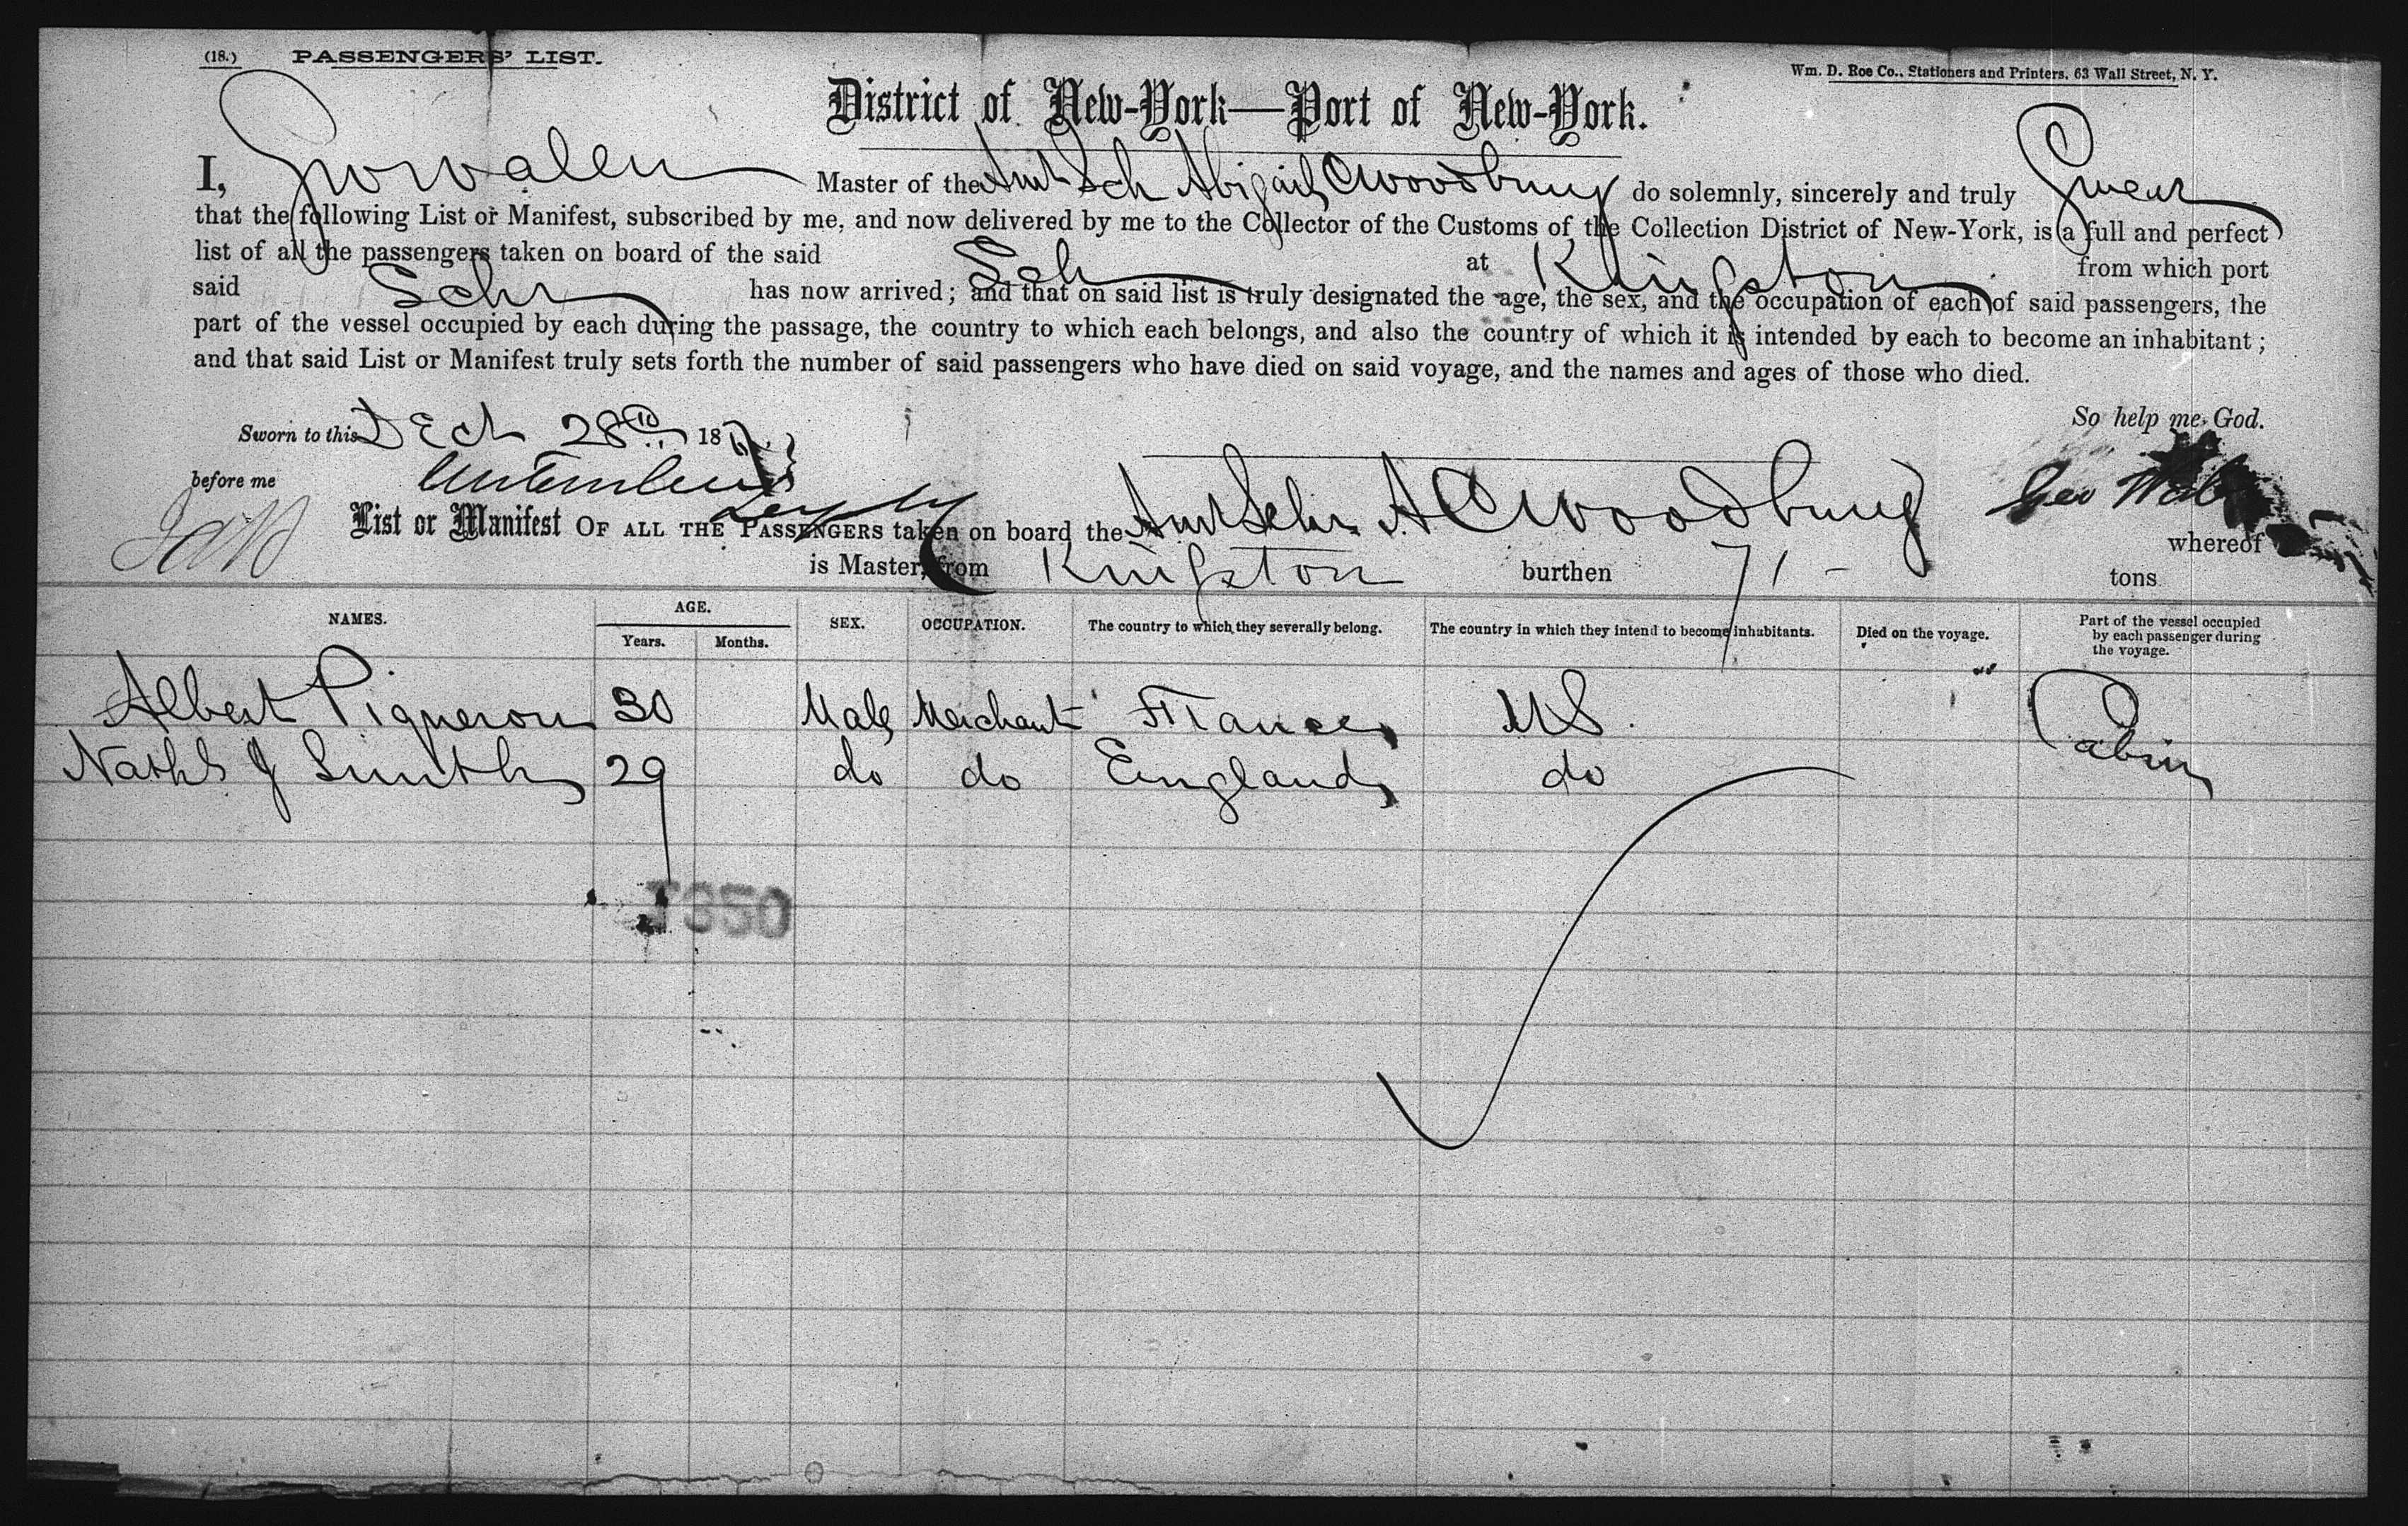 (18.) PASSENGERS' LIST.
Wm. D. Roe Co., Stationers and Printers, 63 Wall Street, N. Y.
District of New-York—Port of New-York.
I, Master of the Am Sch Abigail C Woodbury do solemnly, sincerely and truly Swear
that the following List or Manifest, subscribed by me, and now delivered by me to the Collector of the Customs of the Collection District of New-York, is a full and perfect
list of all the passengers taken on board of the said Sch at Kingston from which port
said Schr has now arrived; and that on said list is truly designated the age, the sex, and the occupation of each of said passengers, the
part of the vessel occupied by each during the passage, the country to which each belongs, and also the country of which it is intended by each to become an inhabitant;
and that said List or Manifest truly sets forth the number of said passengers who have died on said voyage, and the names and ages of those who died.
So help me God.
Sworn to this Dec 28th 18
before me Geo
List or Manifest OF ALL THE PASSENGERS taken on board the Am Schr A C Woodbury whereof
is Master, from Kingston burthen 71 tons
NAMES. AGE. SEX. OCCUPATION. The country to which they severally belong. The country in which they intend to become inhabitants. Died on the voyage. Part of the vessel occupied by each passenger during the voyage.
Years. Months.
Albert Pigueron 30 Male Merchant France US. Cabin
Nathl J Smith 29 do do England do
1350